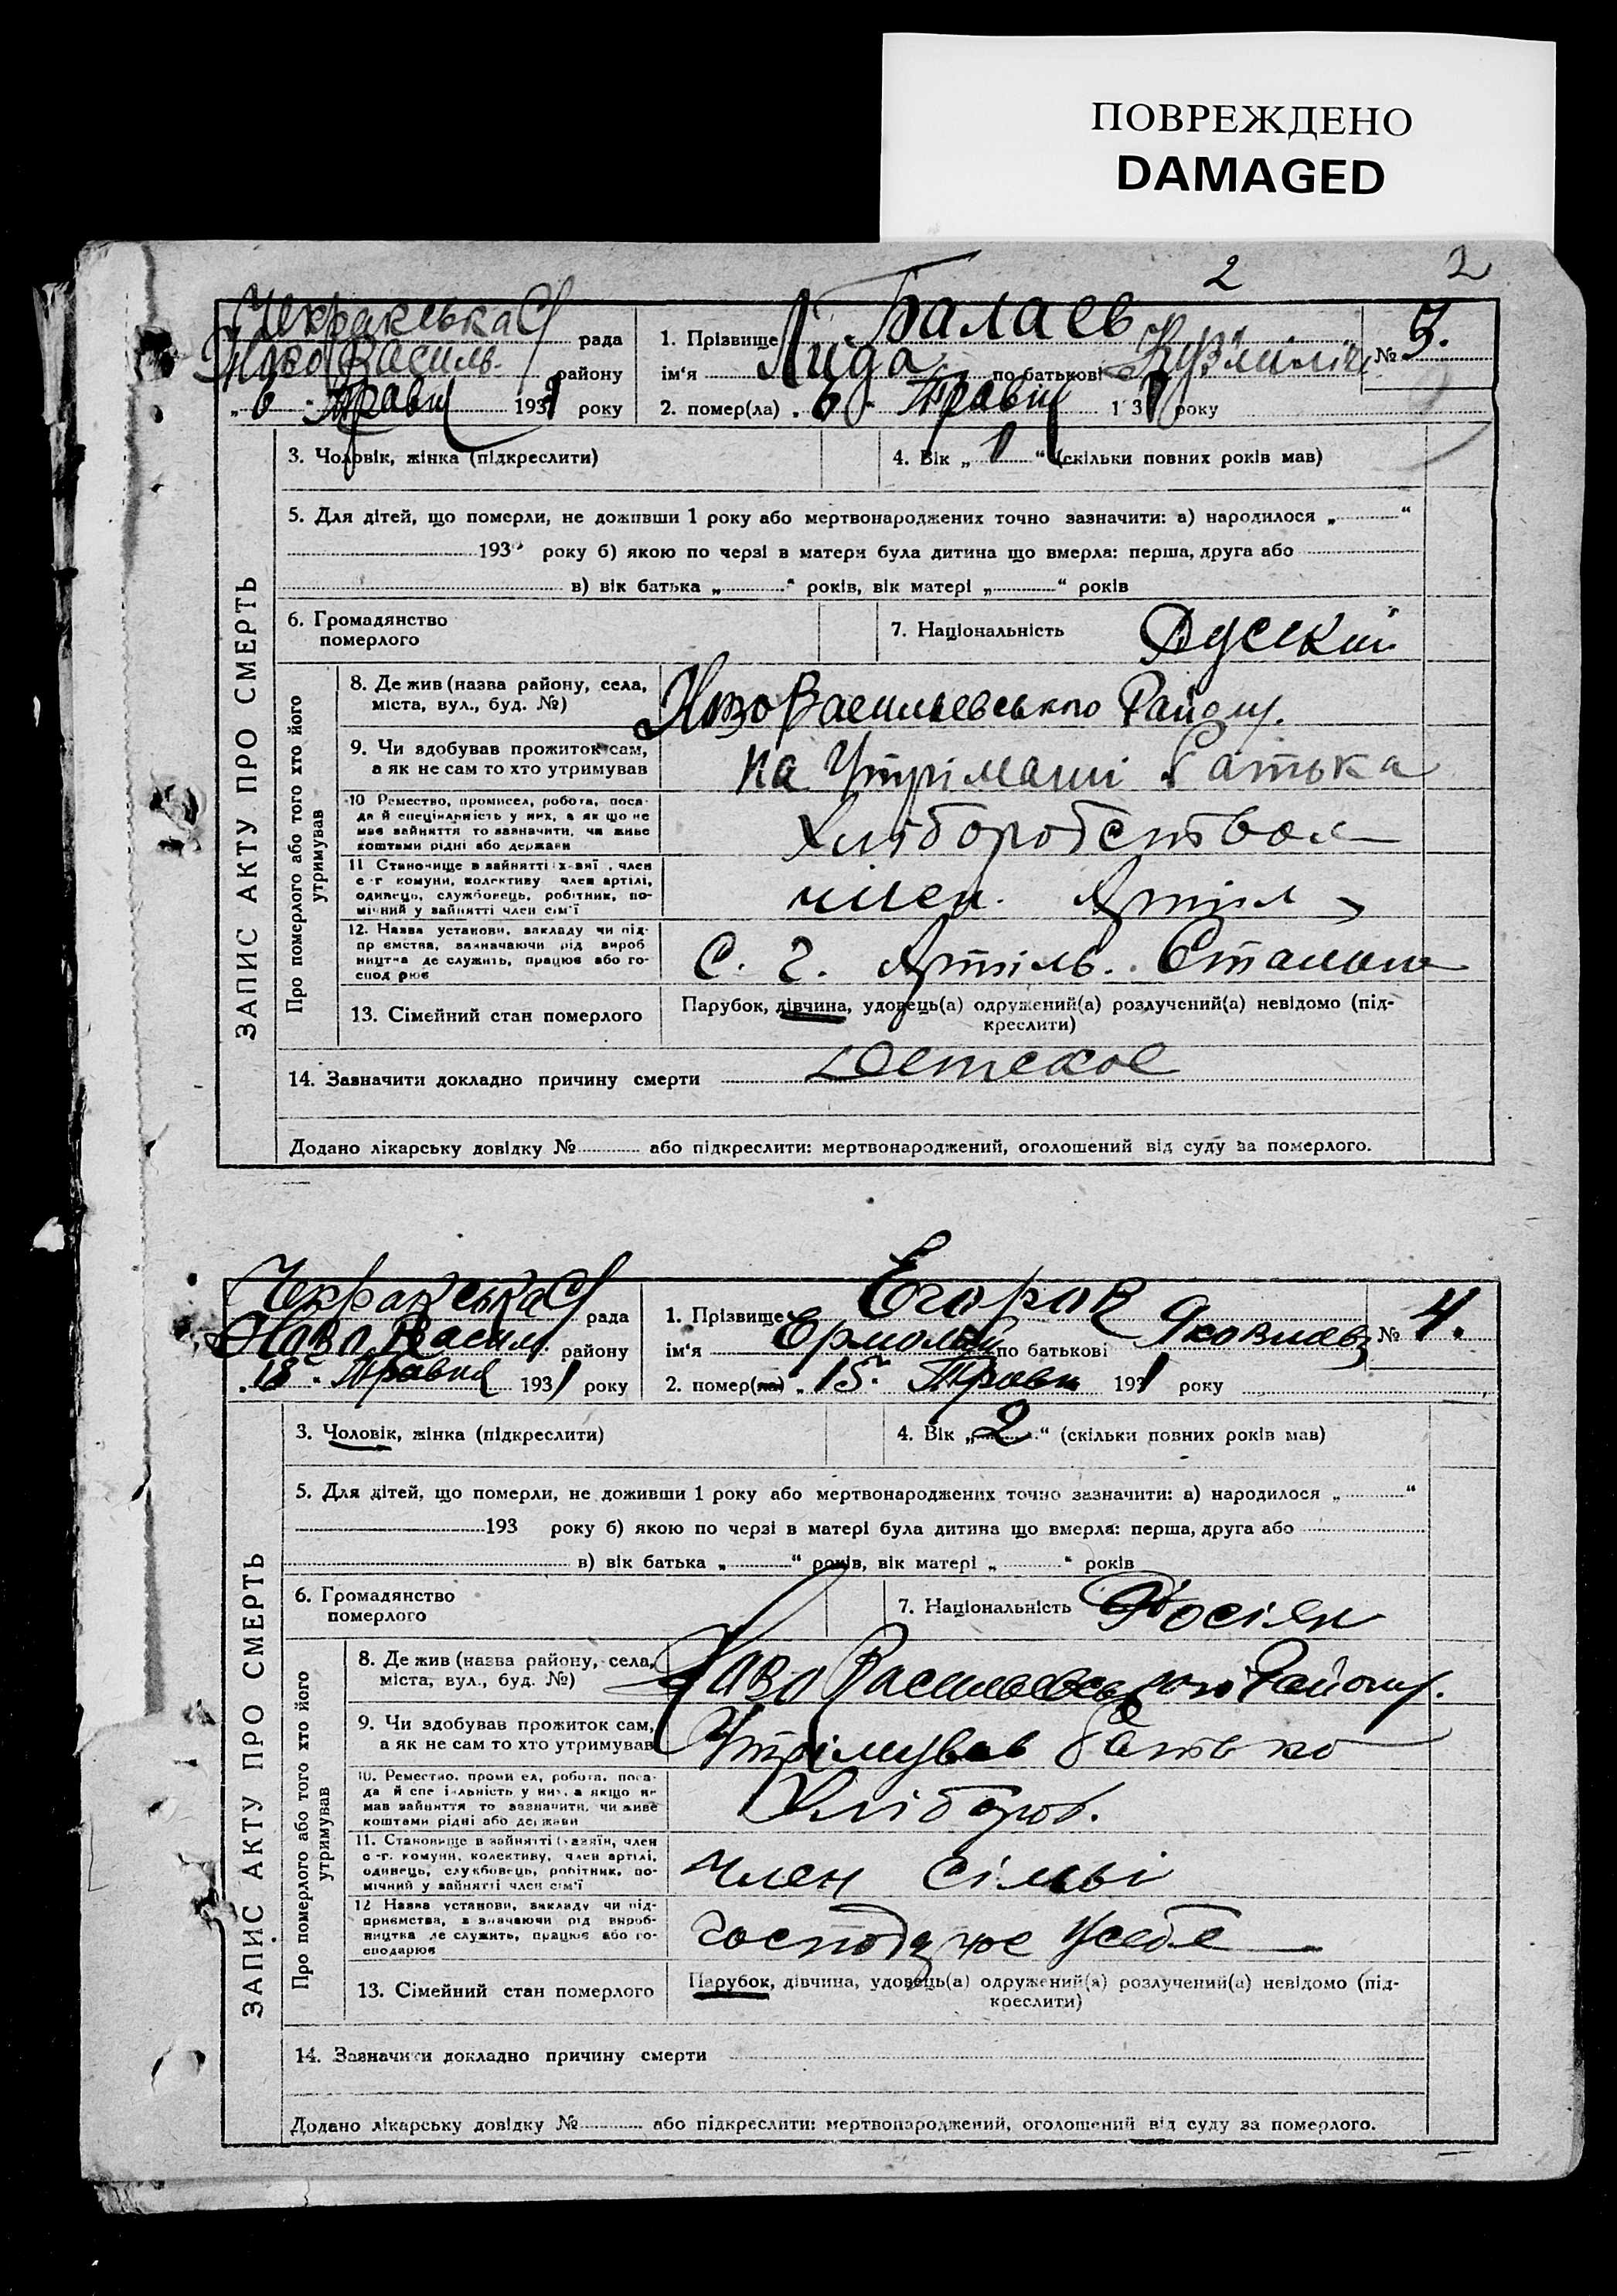 ПОВРЕЖДЕНО
DAMAGED
2 2
Чекракська СР рада
Ново Василь. району
„ 6 " Травня 1931 року
1. Прізвище Балаев
ім'я Лида по батькові № 3.
2. помер(ла) „ 6 " Травня 1 31 року
ЗАПИС АКТУ ПРО СМЕРТЬ
3. Чоловік, жінка (підкреслити)
4. Вік „ 1 “ (скільки повних років мав)
5. Для дітей, що померли, не доживши 1 року або мертвонароджених точно зазначити: а) народилося „ “
193 року б) якою по черзі в матери була дитина що вмерла: перша, друга або
в) вік батька „ “ років, вік матері „ “ років
6. Громадянство
померлого
7. Національність Руский
Про померлого або того хто його
утримував
8. Де жив (назва району, села,
міста, вул., буд. №)
Ново Васильевського Району.
9. Чи здобував прожиток сам,
а як не сам то хто утримував
на Утріманні батька
10 Ремество, промисел, робота, поса-
да й спеціяльність у них, а як що не
має зайняття то зазначити, чи живе
коштами рідні або держави
Хліборобством
11 Становище в зайнятті х-зяї , член
с-г комуни, колективу член артілі,
одинець, службовець, робітник, по-
мічний у зайнятті член сім'ї
член. Артіл
12. Назва установи, закладу чи під-
пр ємства, зазначаючи рід вироб
ництва де служить, працює або го-
спод рює
С. г. Артіль. Сталина
13. Сімейний стан померлого
Парубок, дівчина, удовець(а) одружений(а) розлучений(а) невідомо (під-
креслити)
14. Зазначити докладно причину смерти Детское
Додано лікарську довідку № або підкреслити: мертвонароджений, оголошений від суду за померлого.
Чекракська СР рада
Ново Васил району
„ 18 " Травня 1931 року
1. Прізвище Егоров
ім'я Ермолай по батькові Яковлев № 4.
2. помер(ла) „ 15 " Травн 1931 року
ЗАПИС АКТУ ПРО СМЕРТЬ
3. Чоловік, жінка (підкреслити)
4. Вік „ 2 “ (скільки повних років мав)
5. Для дітей, що померли, не доживши 1 року або мертвонароджених точно зазначити: а) народилося „ “
193 року б) якою по черзі в матері була дитина що вмерла: перша, друга або
в) вік батька „ “ років, вік матері „ “ років
6. Громадянство
померлого
7. Національність Росіян
Про померлого або того хто його
утримував
8. Де жив (назва району, села,
міста, вул., буд. №)
Ново Васильевського Району.
9. Чи здобував прожиток сам,
а як не сам то хто утримував
Утрімував батько
10. Ремество, проми ел, робота, поса-
да й спе і льність у них, а якщо не
мав зайняття то зазначити, чи живе
коштами рідні або держави
Хлібороб.
11. Становище в зайнятті (хазяїн, член
с-г. комуни, колективу, член артілі,
одинець, службовець, робітник, по-
мічний у зайнятті член сім'ї
член сімьі
12 Назва установи, закладу чи під-
приємства, з значаючи рід вироб-
ництва де служить, працює або го-
сподарює
господарює усебе
13. Сімейний стан померлого
Парубок, дівчина, удовець(а) одружений(а) розлучений(а) невідомо (під-
креслити)
14. Зазначити докладно причину смерти
Додано лікарську довідку № або підкреслити: мертвонароджений, оголошений від суду за померлого.